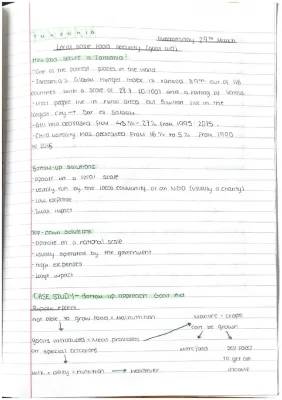 Tanzania
Wednesday 29th March
Local scale food security (goat aid)
How food secure is Tanzania?
- One of the poorest places in the world
- Tanzania's Global Hunger Index is ranked 89th out of 118
countries with a score of 28.4 (0-100) and a rating of serious
- Most people live in rural area but 5 million live in the
largest city → Dar es Salaam
- GHI has decreased from 45% - 29% from 1995 - 2015
- Child wasting has decreased from 10% to 5% from 1990
to 2015
Bottom-up solutions
- operate on a local scale
- usually run by the local community, or an NGO (usually a charity)
- low expense
- small impact
Top-down solutions
- operate on a national scale
- usually operated by the government
- high expenses
- large impact
CASE STUDY - Bottom up approach Goat Aid
not able to grow food = malnutrition
manure → crops
can be grown
goats introduced = meat provided
on special occasions
more food
sell food
to get an
income
milk = = nutrition → healthier